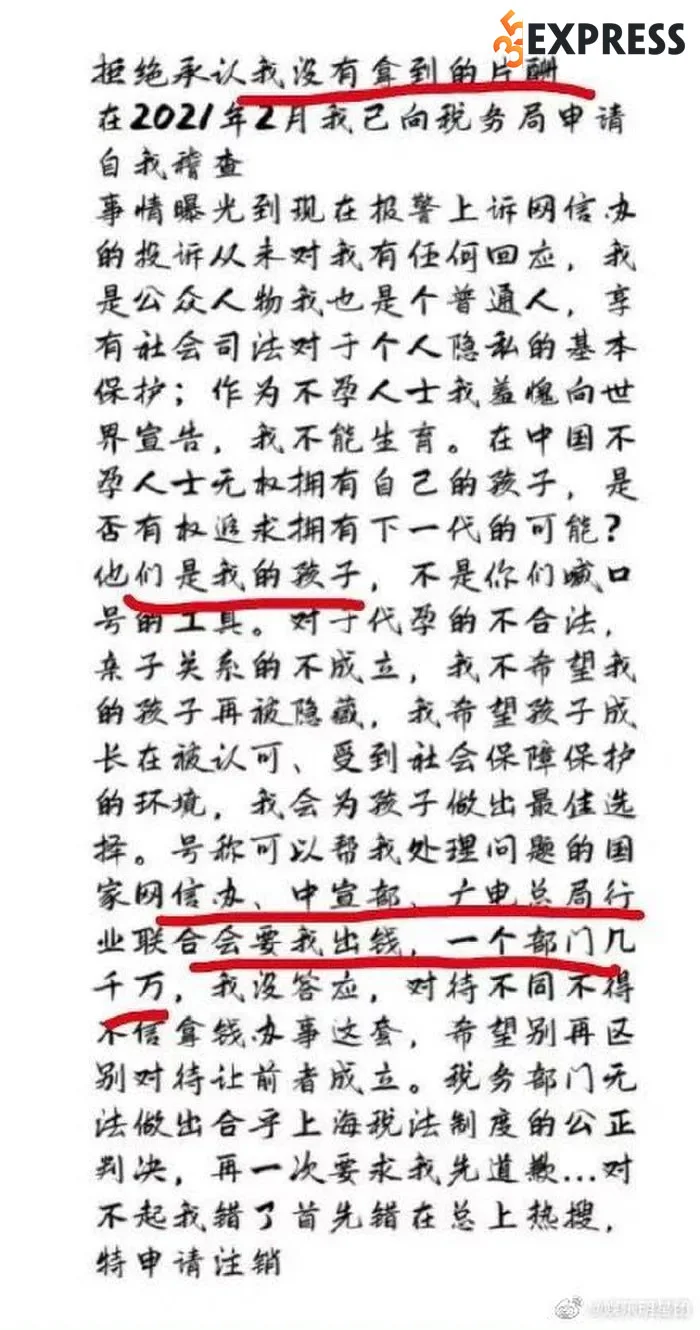 35EXPRESS
拒绝承认我没有拿到的片酬
在2021年2月我已向税务局申请
自我稽查
事情曝光到现在报警上诉网信办
的投诉从未对我有任何回应，我
是公众人物我也是个普通人，享
有社会司法对于个人隐私的基本
保护；作为不孕人士我羞愧向世
界宣告，我不能生育。在中国不
孕人士无权拥有自己的孩子，是
否有权追求拥有下一代的可能？
他们是我的孩子，不是你们喊口
号的工具。对于代孕的不合法，
亲子关系的不成立，我不希望我
的孩子再被隐藏，我希望孩子成
长在被认可、受到社会保障保护
的环境，我会为孩子做出最佳选
择。号称可以帮我处理问题的国
家网信办、中宣部、广电总局行
业联合会要我出钱，一个部门几
千万，我没答应，对待不同不得
不信拿钱办事这套，希望别再区
别对待让前者成立。税务部门无
法做出合乎上海税法制度的公正
判决，再一次要求我先道歉...对
不起我错了首先错在总上热搜，
特申请注销